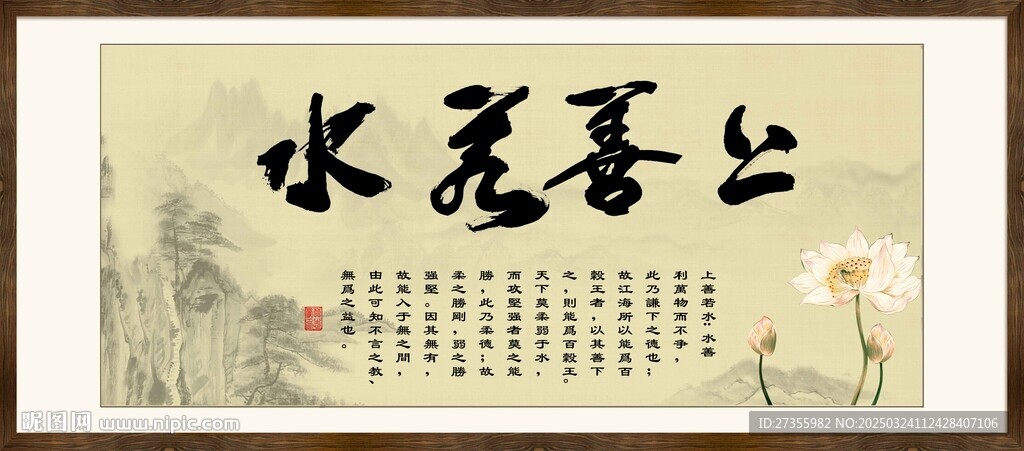 上善若水
上善若水"水善
利萬物而不争，
此乃謙下之德也；
故江海所以能爲百
穀王者，以其善下
之，則能爲百穀王。
天下莫柔弱于水，
而攻堅强者莫之能
勝，此乃柔德；故
柔之勝剛，弱之勝
强堅。因其無有，
故能入于無之間，
由此可知不言之教、
無爲之益也。
昵图网 www.nipic.com
ID:27355982 NO:20250324112428407106